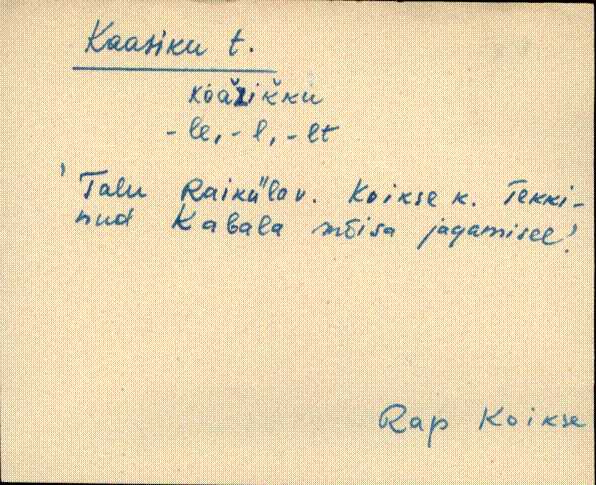 Kaasiku t.
koäzikku
-le, -l, -lt
'Talu Raikülav. Koikse k. Tekki-
nud Kabala mõisa jagamisel.'
Rap Koikse